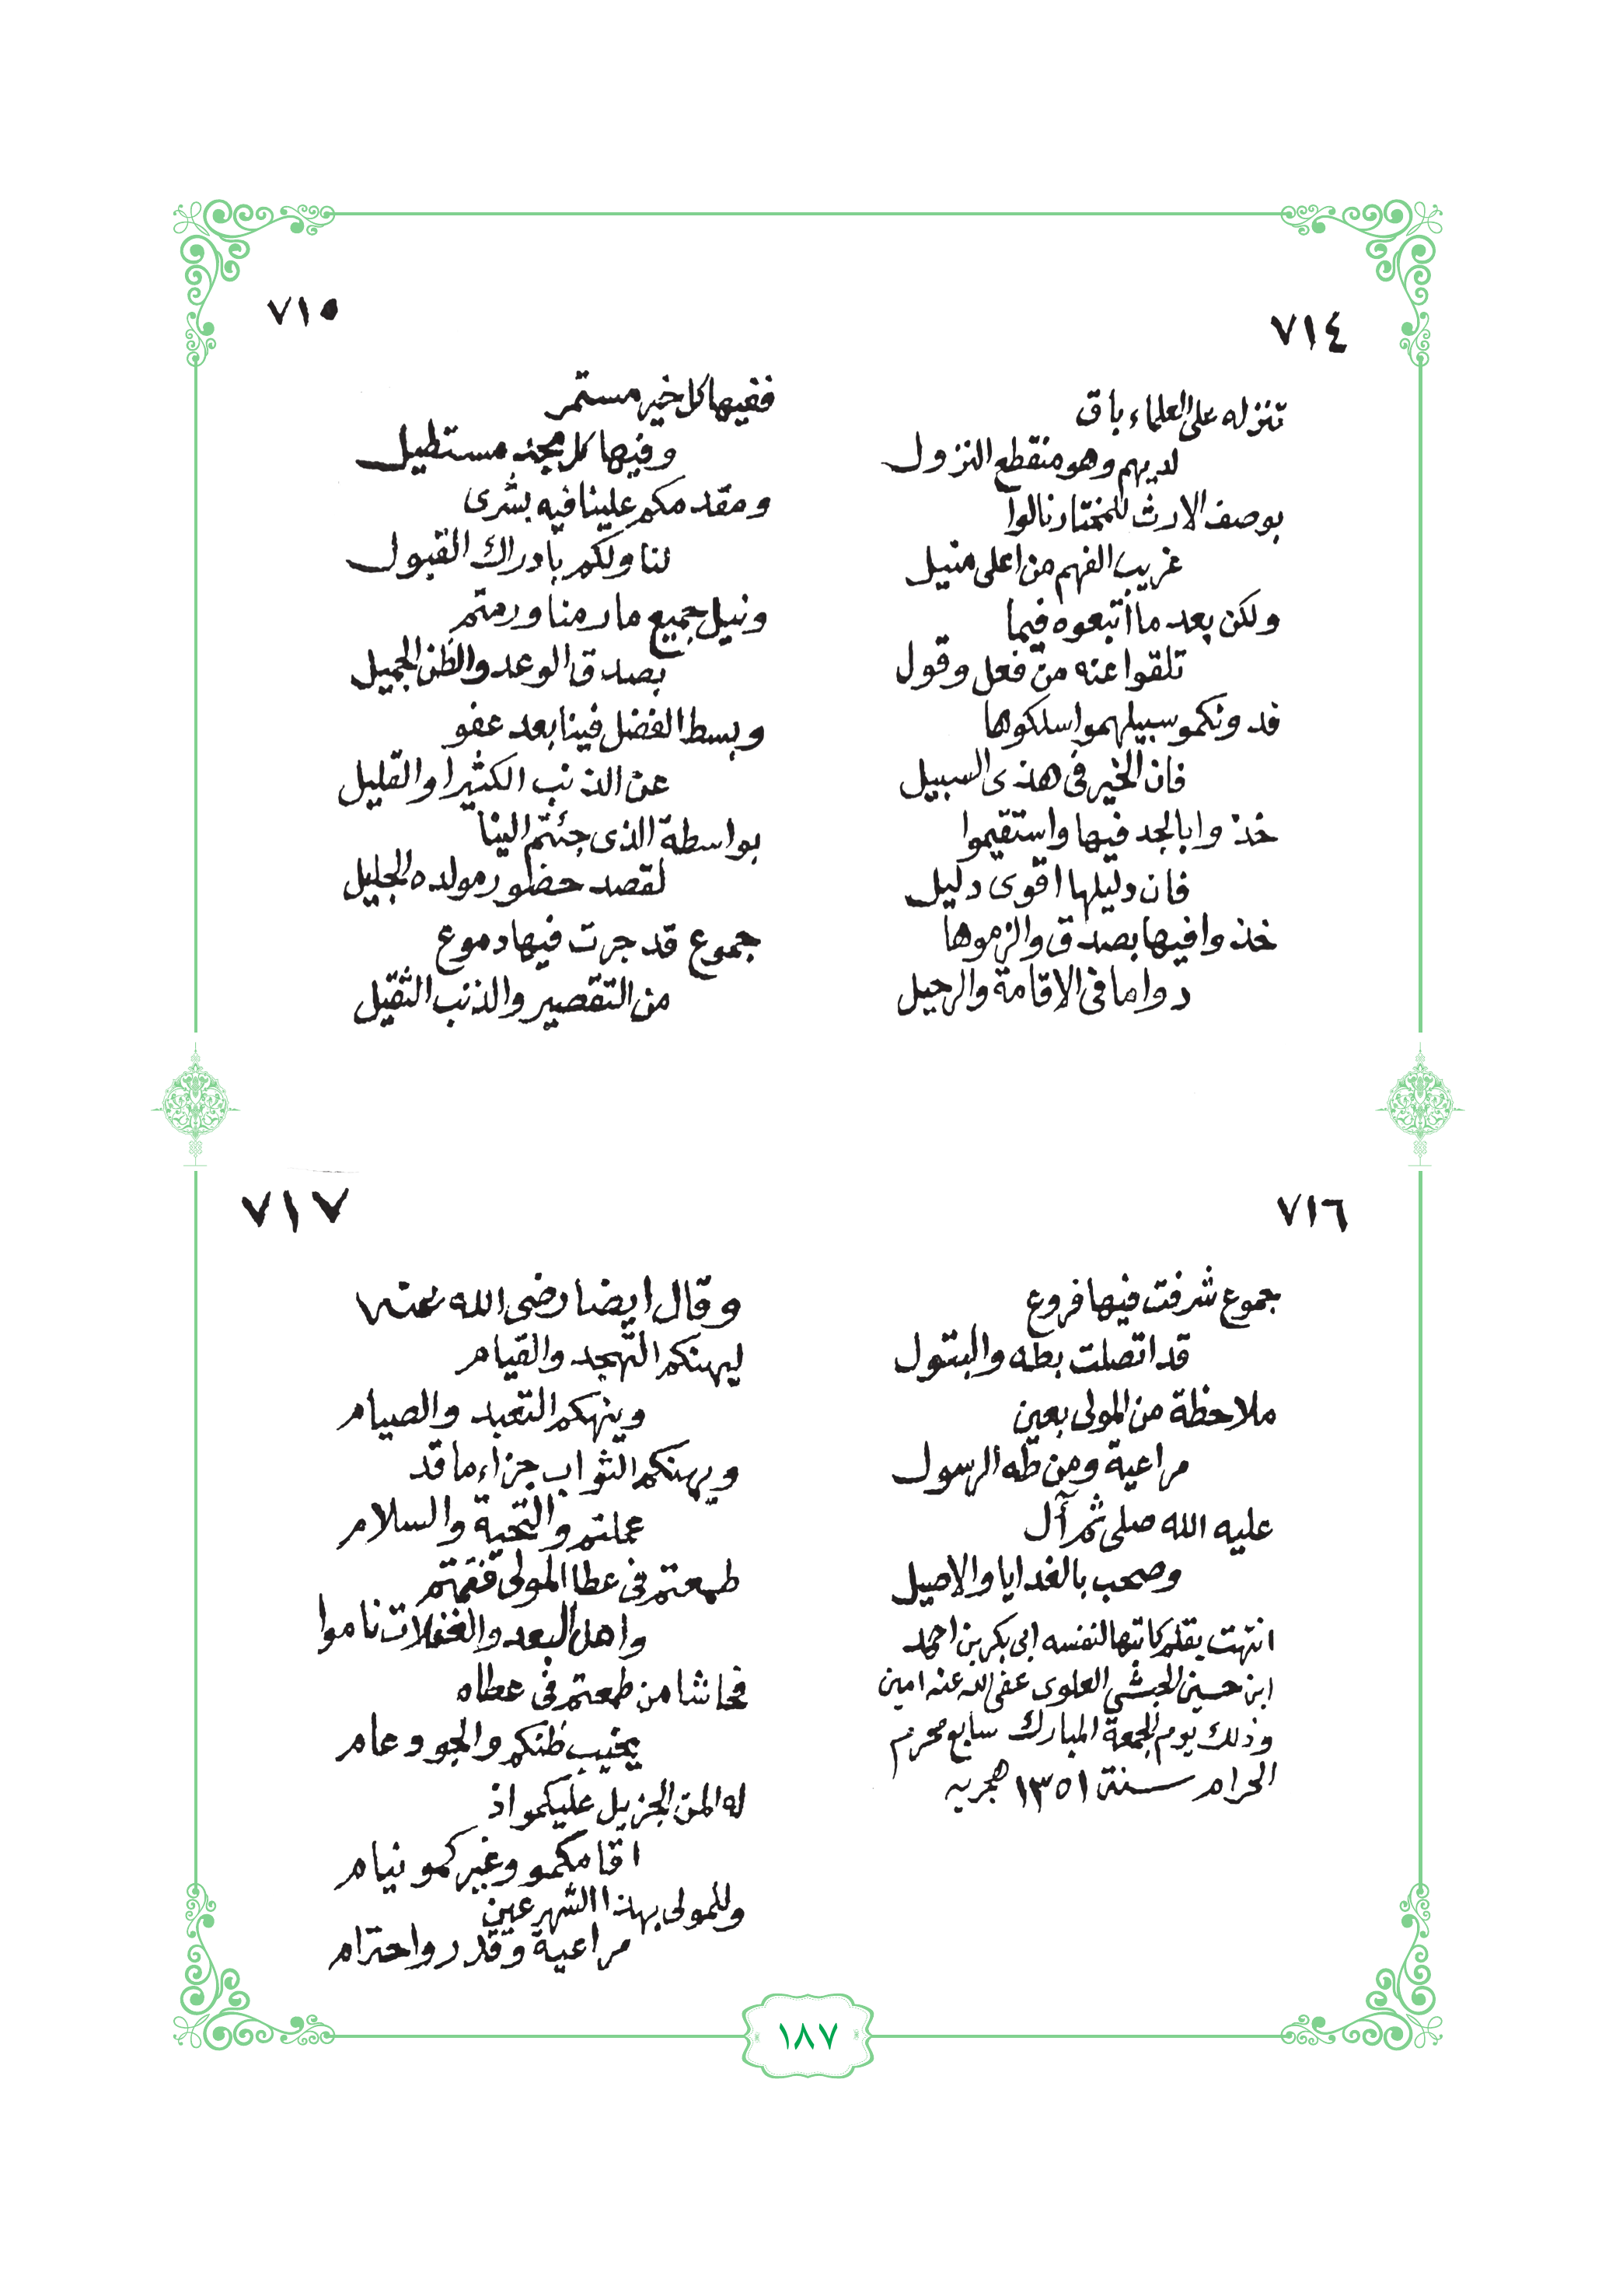 ٧١٤
تنزله على العلماء باق
لديهم وهو منقطع النزول
بوصف الارث للمختار نالوا
غريب الفهم من اعلى منيل
ولكن بعد ما اتبعوه فيما
تلقوا عنه من فعل وقول
فدونكمو سبيلهمو اسلكوها
فان الخير فى هذى السبيل
خذوا بالجد فيها واستقيموا
فان دليلها اقوى دليل
خذوا فيها بصدق والزموها
دواما فى الاقامة والرحيل
٧١٥
ففيها كل خير مستمر
وفيها كل مجد مستطيل
ومقدمكم علينا فيه بشرى
لنا ولكم بادراك القبول
ونيل جميع ما رمنا ورمتم
بصدق الوعد والظن الجميل
وبسط الفضل فينا بعد عفو
عن الذنب الكثير او القليل
بواسطة الذى جئتم الينا
لقصد حضور مولده الجليل
جموع قد جرت فيها دموع
من التقصير والذنب الثقيل
٧١٦
جموع شرفت فيها فروع
قد اتصلت بطه والبتول
ملاحظة من المولى بعين
مراعية ومن طه الرسول
عليه الله صلى ثم آل
وصحب بالغدايا والاصيل
انتهت بقلم كاتبها لنفسه ابى بكر بن احمد
ابن حسين الحبشي العلوى عفى الله عنه امين
وذلك يوم الجمعة المبارك سابع محرم
الحرام سنة ١٣٥١ هجريه
٧١٧
وقال ايضا رضى الله عنه
ليهنكم التهجد والقيام
وينهكم التعبد والصيام
ويهنكم الثواب جزاء ما قد
عملتم والتحية والسلام
طمعتم فى عطا المولى فقمتم
واهل البعد والغفلات ناموا
فحاشا من طمعتم فى عطاه
يخيب ظنكم والجود عام
له المن الجزيل عليكمو اذ
اقامكمو وغيركمو نيام
وللمولى بهذا الشهر عين
مراعية وقدر واحترام
١٨٧